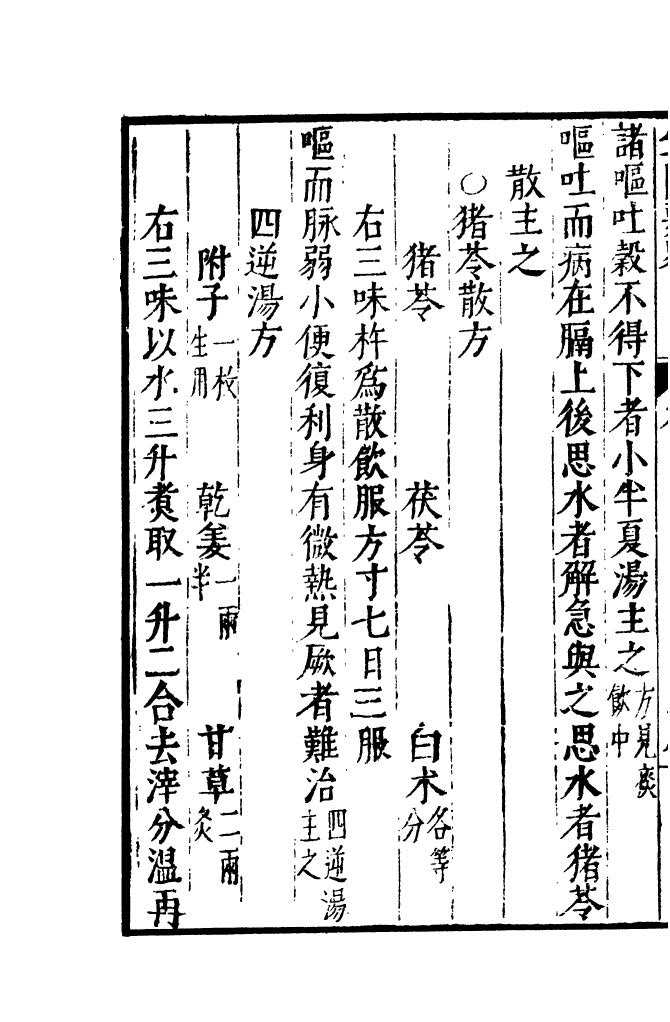 諸嘔吐穀不得下者小半夏湯主之方見痰飲中
嘔吐而病在膈上後思水者解急與之思水者猪苓
散主之
○猪苓散方
猪苓 茯苓 白术各等分
右三味杵爲散飲服方寸七日三服
嘔而脉弱小便復利身有微熱見厥者難治四逆湯主之
四逆湯方
附子一枚生用 乾姜一兩半 甘草二兩炙
右三味以水三升煑取一升二合去滓分溫再